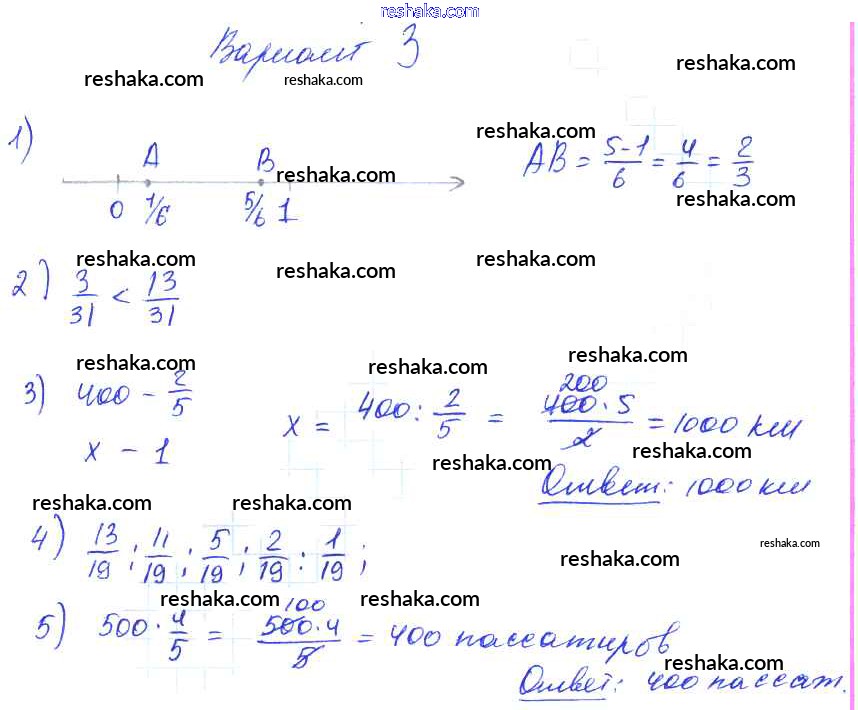 reshaka.com
Вариант 3
reshaka.com reshaka.com reshaka.com
1) A B reshaka.com reshaka.com AB = 5-1/6 = 4/6 = 2/3
0 1/6 5/6 1 reshaka.com
reshaka.com reshaka.com reshaka.com
2) 3/31 < 13/31
reshaka.com reshaka.com reshaka.com
3) 400 - 2/5
x - 1 x = 400 : 2/5 = 400·5/2 = 1000 км
200
reshaka.com reshaka.com
Ответ: 1000 км
reshaka.com reshaka.com
4) 13/19 ; 11/19 ; 5/19 ; 2/19 : 1/19 ;
reshaka.com reshaka.com
reshaka.com reshaka.com
5) 500 · 4/5 = 500·4/5 = 400 пассажиров
100
reshaka.com
Ответ: 400 пассаж.